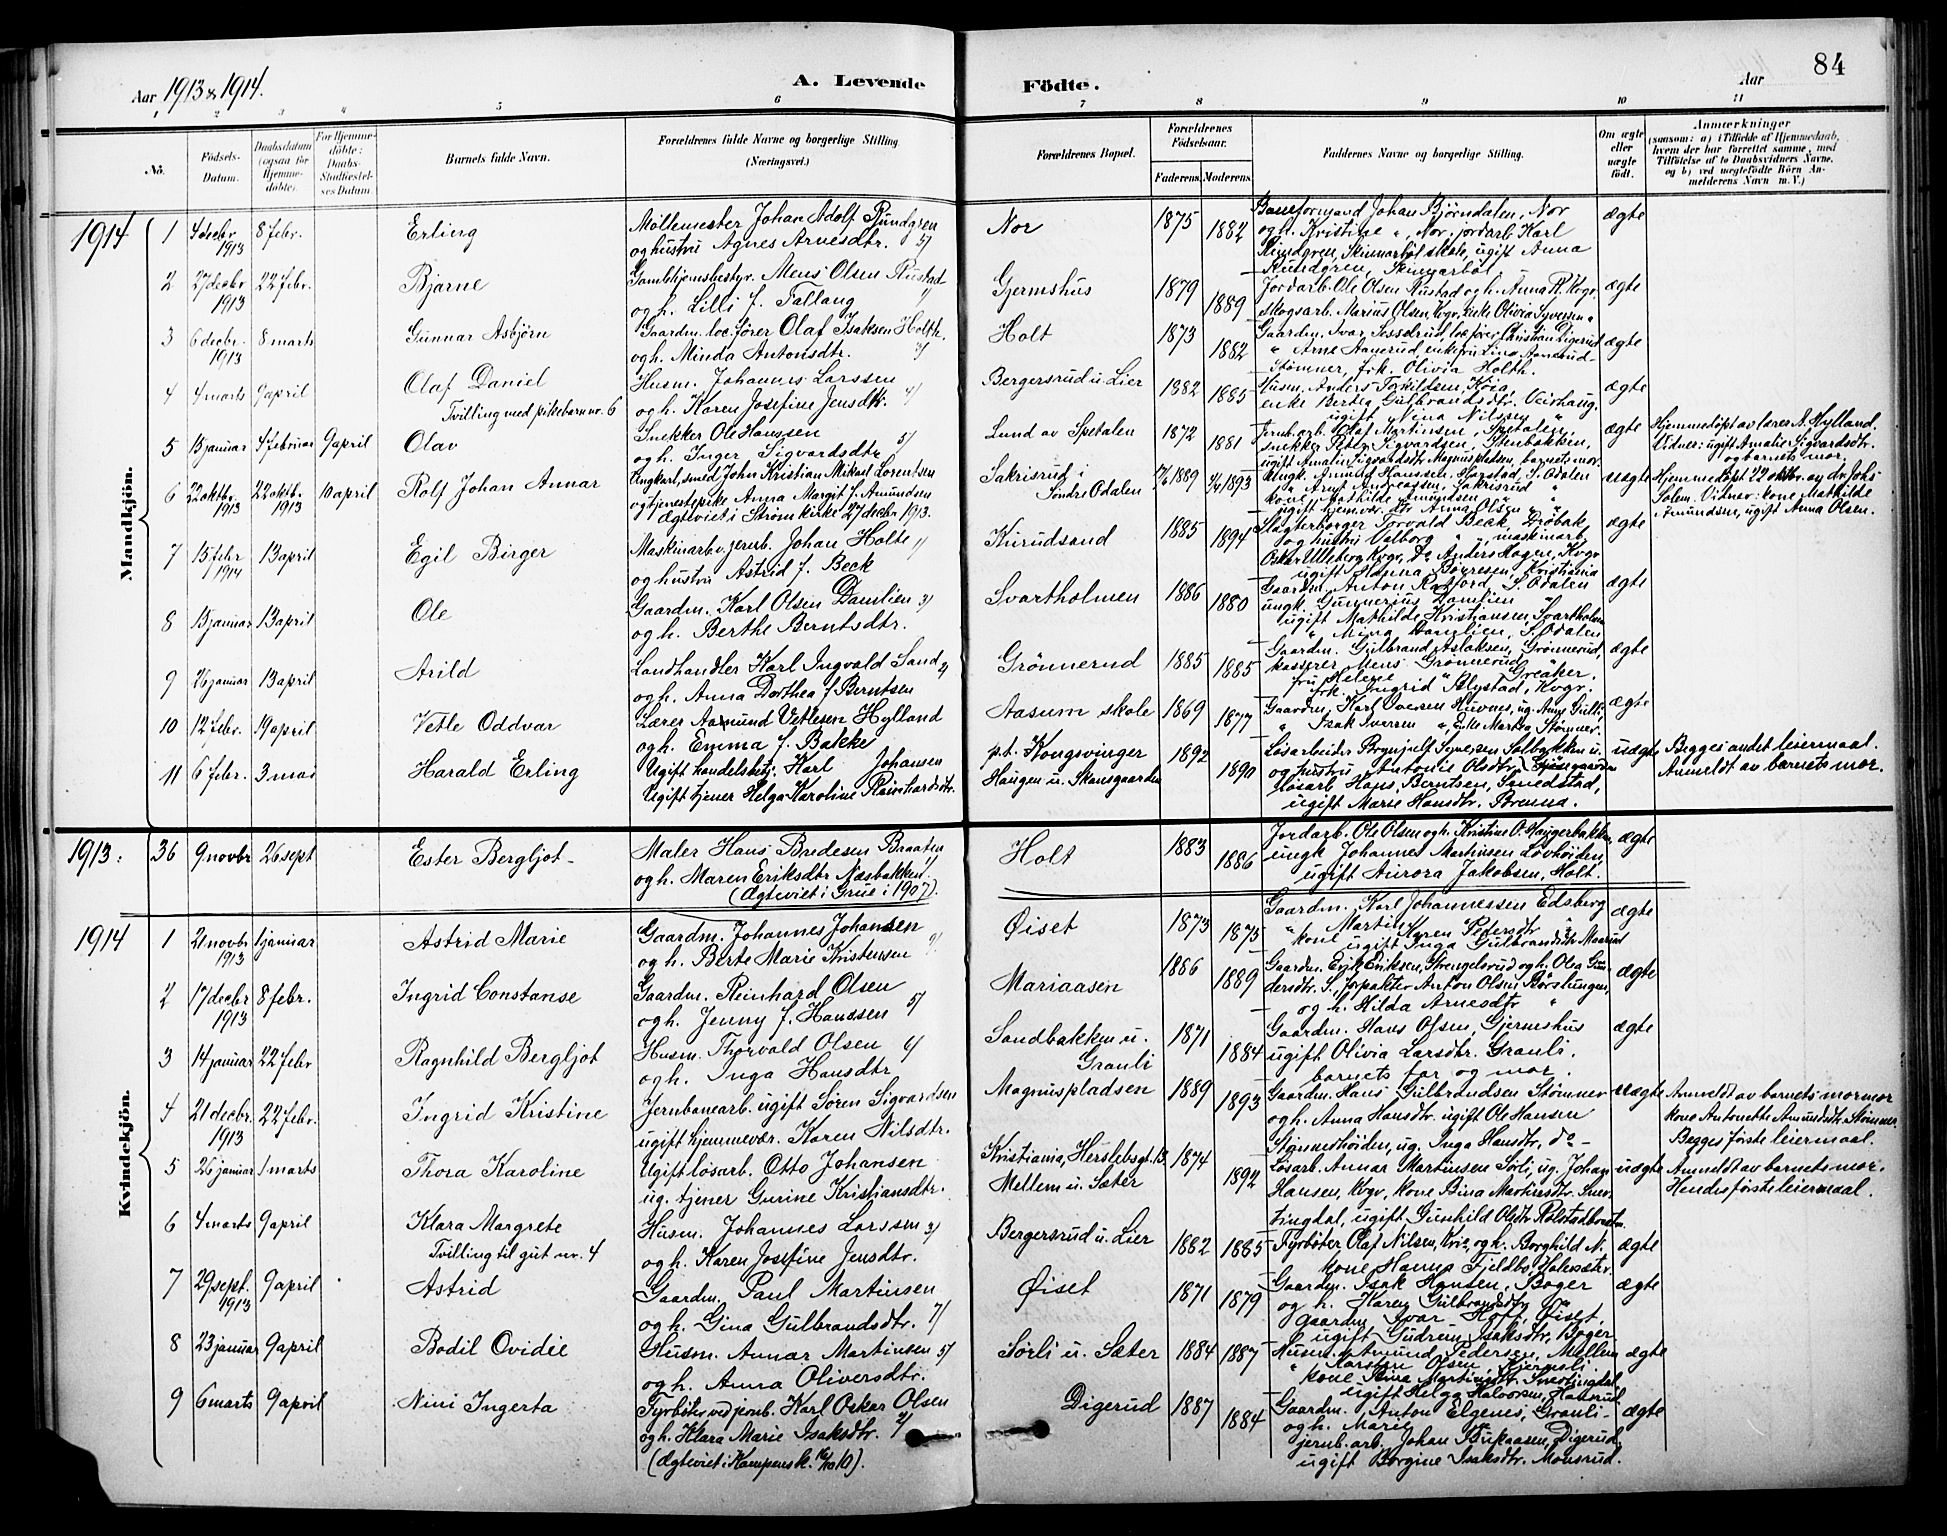 84
Aar 1913 & 1914.
A. Levende Födte.
Aar
1 2 3 4 5 6 7 8 9 10 11
No.
Födsels-Datum.
Daabsdatum (ogsaa for Hjemme-döbte).
For Hjemme-döbte: Daabs-Stadfæstelses Datum.
Barnets fulde Navn.
Forældrenes fulde Navne og borgerlige Stilling (Næringsvei.)
Forældrenes Bopæl.
Forældrenes Födselsaar.
Faderens. Moderens.
Faddernes Navne og borgerlige Stilling.
Om ægte eller uægte födt.
Anmærkninger
(saasom: a) i Tilfælde af Hjemmedaab, hvem der har forrettet samme, med Tilföielse af to Daabsvidners Navne, og b) ved uægtefödte Börn Anmelderens Navn m. V.)
Mandkjön.
1914 1 4 decbr 1913 8 febr. Erling
Möllemester Johan Adolf Rundgren
og hustru Agnes Arnesdtr. 5/
Nor 1875 1882
Baneformand Johan Björndalen, Nor
og h. Kristine ", Nor. jordarb. Karl
Rundgren, Skinnarböl skole, ugift Anna
Rundgren, Skinnarböl
ægte
2 27 decbr 1913 22 febr. Bjarne
Mens Olsen Rustad
og h. Lilli f. Fallang
Gjermshus 1879 1889
Jordarb. Ole Olsen Rustad og h. Anna R. Kogv.
Skogsarb. Marius Olsen, Kogv. Olivia Syversen
ægte
3 6 decbr. 1913 8 marts Gunnar Asbjörn
Gaardm. loc. fører Olaf Isaksen Holth.
og h. Minda Antonsdtr. 3/
Holt 1873 1882
" Arne Aamerud, enkefru Lina Aamerud
Stömner, frk. Olivia Holth.
ægte
4 4 marts 9 april Olaf Daniel
Tvilling med pikebarn nr. 6
Husm. Johannes Larssen
og h. Karen Josefine Jensdtr. 4/
Bergersrud u. Lier 1882 1885
Husm. Anders Torkildsen, Köia,
enke Bertea Gulbrandsdtr. Veirhaug,
ugift Nina Nilssen "
ægte
5 15 januar 4 februar 9 april Olav
Snekker Ole Hanssen
og h. Inger Sigvardsdtr 5/
Lund av Spetalen 1872 1881
Jernb.arb. Olaf Martinsen, Spetalen,
snekker Peter Sigvardsen, Stenbakken,
ugift Amalie Sigvardsdtr Magnuspladsen, barnets mor.
ægte
Hjemmedöpt av lærer A. Hylland.
Vidner: ugift Amalie Sigvardsdtr.
og barnets mor.
6 22 oktbr. 1913 22 oktb. 1913 10 april Rolf Johan Annar
Ungkarl, smed John Kristian Mikael Lorentsen
og tjenestepike Anna Margit f. Amundsen
Ægteviet i Ström kirke 27 decbr 1913.
Sakrisrud i
Söndre Odalen 1889 1893
Ungk. Amund Hanssen, Hagstad, S. Odalen
" Arnt Andreassen, Sakrisrud "
kone Mathilde Amundsen "
ugift hjem.vær. dtr Anna Olsen "
uægte
Hjemmedöpt 22 oktbr. av dr. Johs
Salem. Vidner: kone Mathilde
Amundsen, ugift Anna Olsen.
7 15 febr 1914 13 april Egil Birger
Maskinarb v. jernb. Johan Holte 1/
og hustru Astrid f. Beck
Kurudsand 1885 1894
Slagterborger Torvald Beck, Dröbak,
og hustru Valborg " " maskinarb.
Oskar Ulleberg Kogv, Do Anders Hagen, Kogv
ugift Hanna Börresen, Kristiania
ægte
8 15 januar 13 april Ole
Gaardm. Karl Olsen Damlien 3/
og h. Berthe Berntsdtr.
Svartholmen 1886 1880
Gaardm. Anton Rasford, S. Odalen
ungk. Gunnerius Damlien "
ugift Mathilde Kristiansen, Svartholmen
" Mina Damlien, S. Odalen
ægte
9 26 januar 13 april Arild
Landhandler Karl Ingvald Sand 2/
og h. Anna Dorthea f. Berntsen
Grönnerud 1885 1885
Gaardm. Gulbrand Aslaksen, Grönnerud,
kasserer Mens Grönnerud "
fru Helene " Greåker.
frk. Ingrid Rystad, Kogv.
ægte
10 12 febr. 19 april Vetle Oddvar
Lærer Aamund Vetlesen Hylland
og h. Emma f. Bakke
Aasum skole 1869 1877
" Isak Iversen " Stömner.
ægte
11 6 febr. 3 mai Harald Erling
Ugift handelsbetj. Karl Johansen
Ugift tjener Helga Karoline Reinhardsdtr.
p.t. Kongsvinger
Haugen u. Skansgaarden 1892 1890
Lösarbeider Brynjulf Syversen Solbakken u.
og hustru Antonie Olsdtr. Skansgaarden
Lösarb Hans Berntsen, Smedstad,
ugift Marie Hansdtr. Brenna.
uægte
Begges andet leiermaal.
Anmeldt av barnets mor.
Kvindekjön.
1913: 36 9 novbr 26 sept Ester Bergljot
Maler Hans Bredesen Braaten
og h. Maren Eriksdtr Næsbakken. 1/
(Ægteviet i Grue i 1907).
Holt 1883 1886
Jordarb. Ole Olsen og h. Kristine O. Haugerbakken
ungk Johannes Martinsen Lövhöiden,
ugift Aurora Jakobsen, Holt.
ægte
1914 1 21 novbr 1913 1 januar Astrid Marie
Gaardm. Johannes Johansen
og h. Berte Marie Kristensen 9/
Øiset 1873 1875
Gaardm. Karl Johannessen Edsberg
" Martin "
kone Karen Pedersdtr "
ugift Inga Gulbrandsdtr Maarud
ægte
2 17 decbr 1913 8 febr. Ingrid Constanse
Gaardm. Reinhard Olsen
og h. Jenny f. Hanssen 5/
Mariaasen 1886 1889
Gaardm. Erik Eriksen, Strengelsrud og h. Olea Gun-
dersdtr. S., forpakter Anton Olsen Börslungen,
og h. Hilda Arnesdtr "
ægte
3 14 januar 22 febr Ragnhild Bergljot
Husm. Thorvald Olsen 4/
og h. Inga Hansdtr
Sandbakken u.
Granli 1871 1884
Gaardm. Hans Olsen, Gjermshus
ugift Olivia Larsdtr. Granli.
barnets far og mor.
ægte
4 21 decbr. 1913 22 febr. Ingrid Kristine
Jernbanearb. ugift Sören Sigvardsen
ugift hjemmevær. Karen Nilsdtr.
Magnuspladsen 1889 1893
Gaardm. Hans Gulbrandsen Stömner
og h. Anna Hansdtr. ugift Ole Hansen
Stömnerhöiden, ug. Inga Hansdtr, do -
uægte
Anmeldt av barnets mormor
kone Antonette Amundsdtr. Stömner
Begges förste leiermaal.
5 26 januar 1 marts Thora Karoline
Ugift lösarb. Otto Johansen
ug. tjener Gurine Kristiansdtr.
Kristiania, Herslebsgt. 13
Mellem u. Sæter 1874 1892
Lösarb. Annar Martinsen Sörli, ug. Johan
Hansen, Kogv, kone Bina Martinsdtr. Sner-
tingdal, ugift Gunhild Olsdtr Rolstadbraaten.
uægte
Anmeldt av barnets mor.
Hendes förste leiermaal.
6 4 marts 9 april Klara Margrete
Tvilling til gut nr. 4
Husm. Johannes Larssen 3/
og h. Karen Josefine Jensdtr.
Bergersrud u. Lier 1882 1885
Fyrböter Olaf Nilsen, Vrie, og h. Borghild N.
kone Hanna Fjeldbo
ægte
7 29 sept. 1913 9 april Astrid
Gaardm. Paul Martinsen
og h. Gina Gulbrandsdtr. 7/
Øiset 1871 1879
Gaardm. Isak Hansen, Boger
og h. Karen Gulbrandsdtr "
gaardm Ivar Hoff, Øiset,
ugift Gudrun Isaksdtr, Boger
ægte
8 23 januar 9 april Bodil Ovidie
Husm. Annar Martinsen 5/
og h. Anna Oliversdtr.
Sörli u. Sæter 1884 1887
Husm. Amund Pedersen, Mellem
" Karsten Olsen, Kjernsli
kone Bina Martinsdtr. Snertingdal
ugift Helga Halvorsen, Hansrud
ægte
9 6 marts 9 april Nini Ingerta
Fyrböter ved jernb. Karl Oskar Olsen
og h. Klara Marie Isaksdtr. 2/
(Ægteviet i Kampens k. 16/10 10).
Digerud 1887 1884
Gaardm. Anton Elgenes, Granli
og h. Marie "
jernb.arb. Johan Bukaasen, Digerud,
ugift Borgine Isaksdtr. Monsrud.
ægte